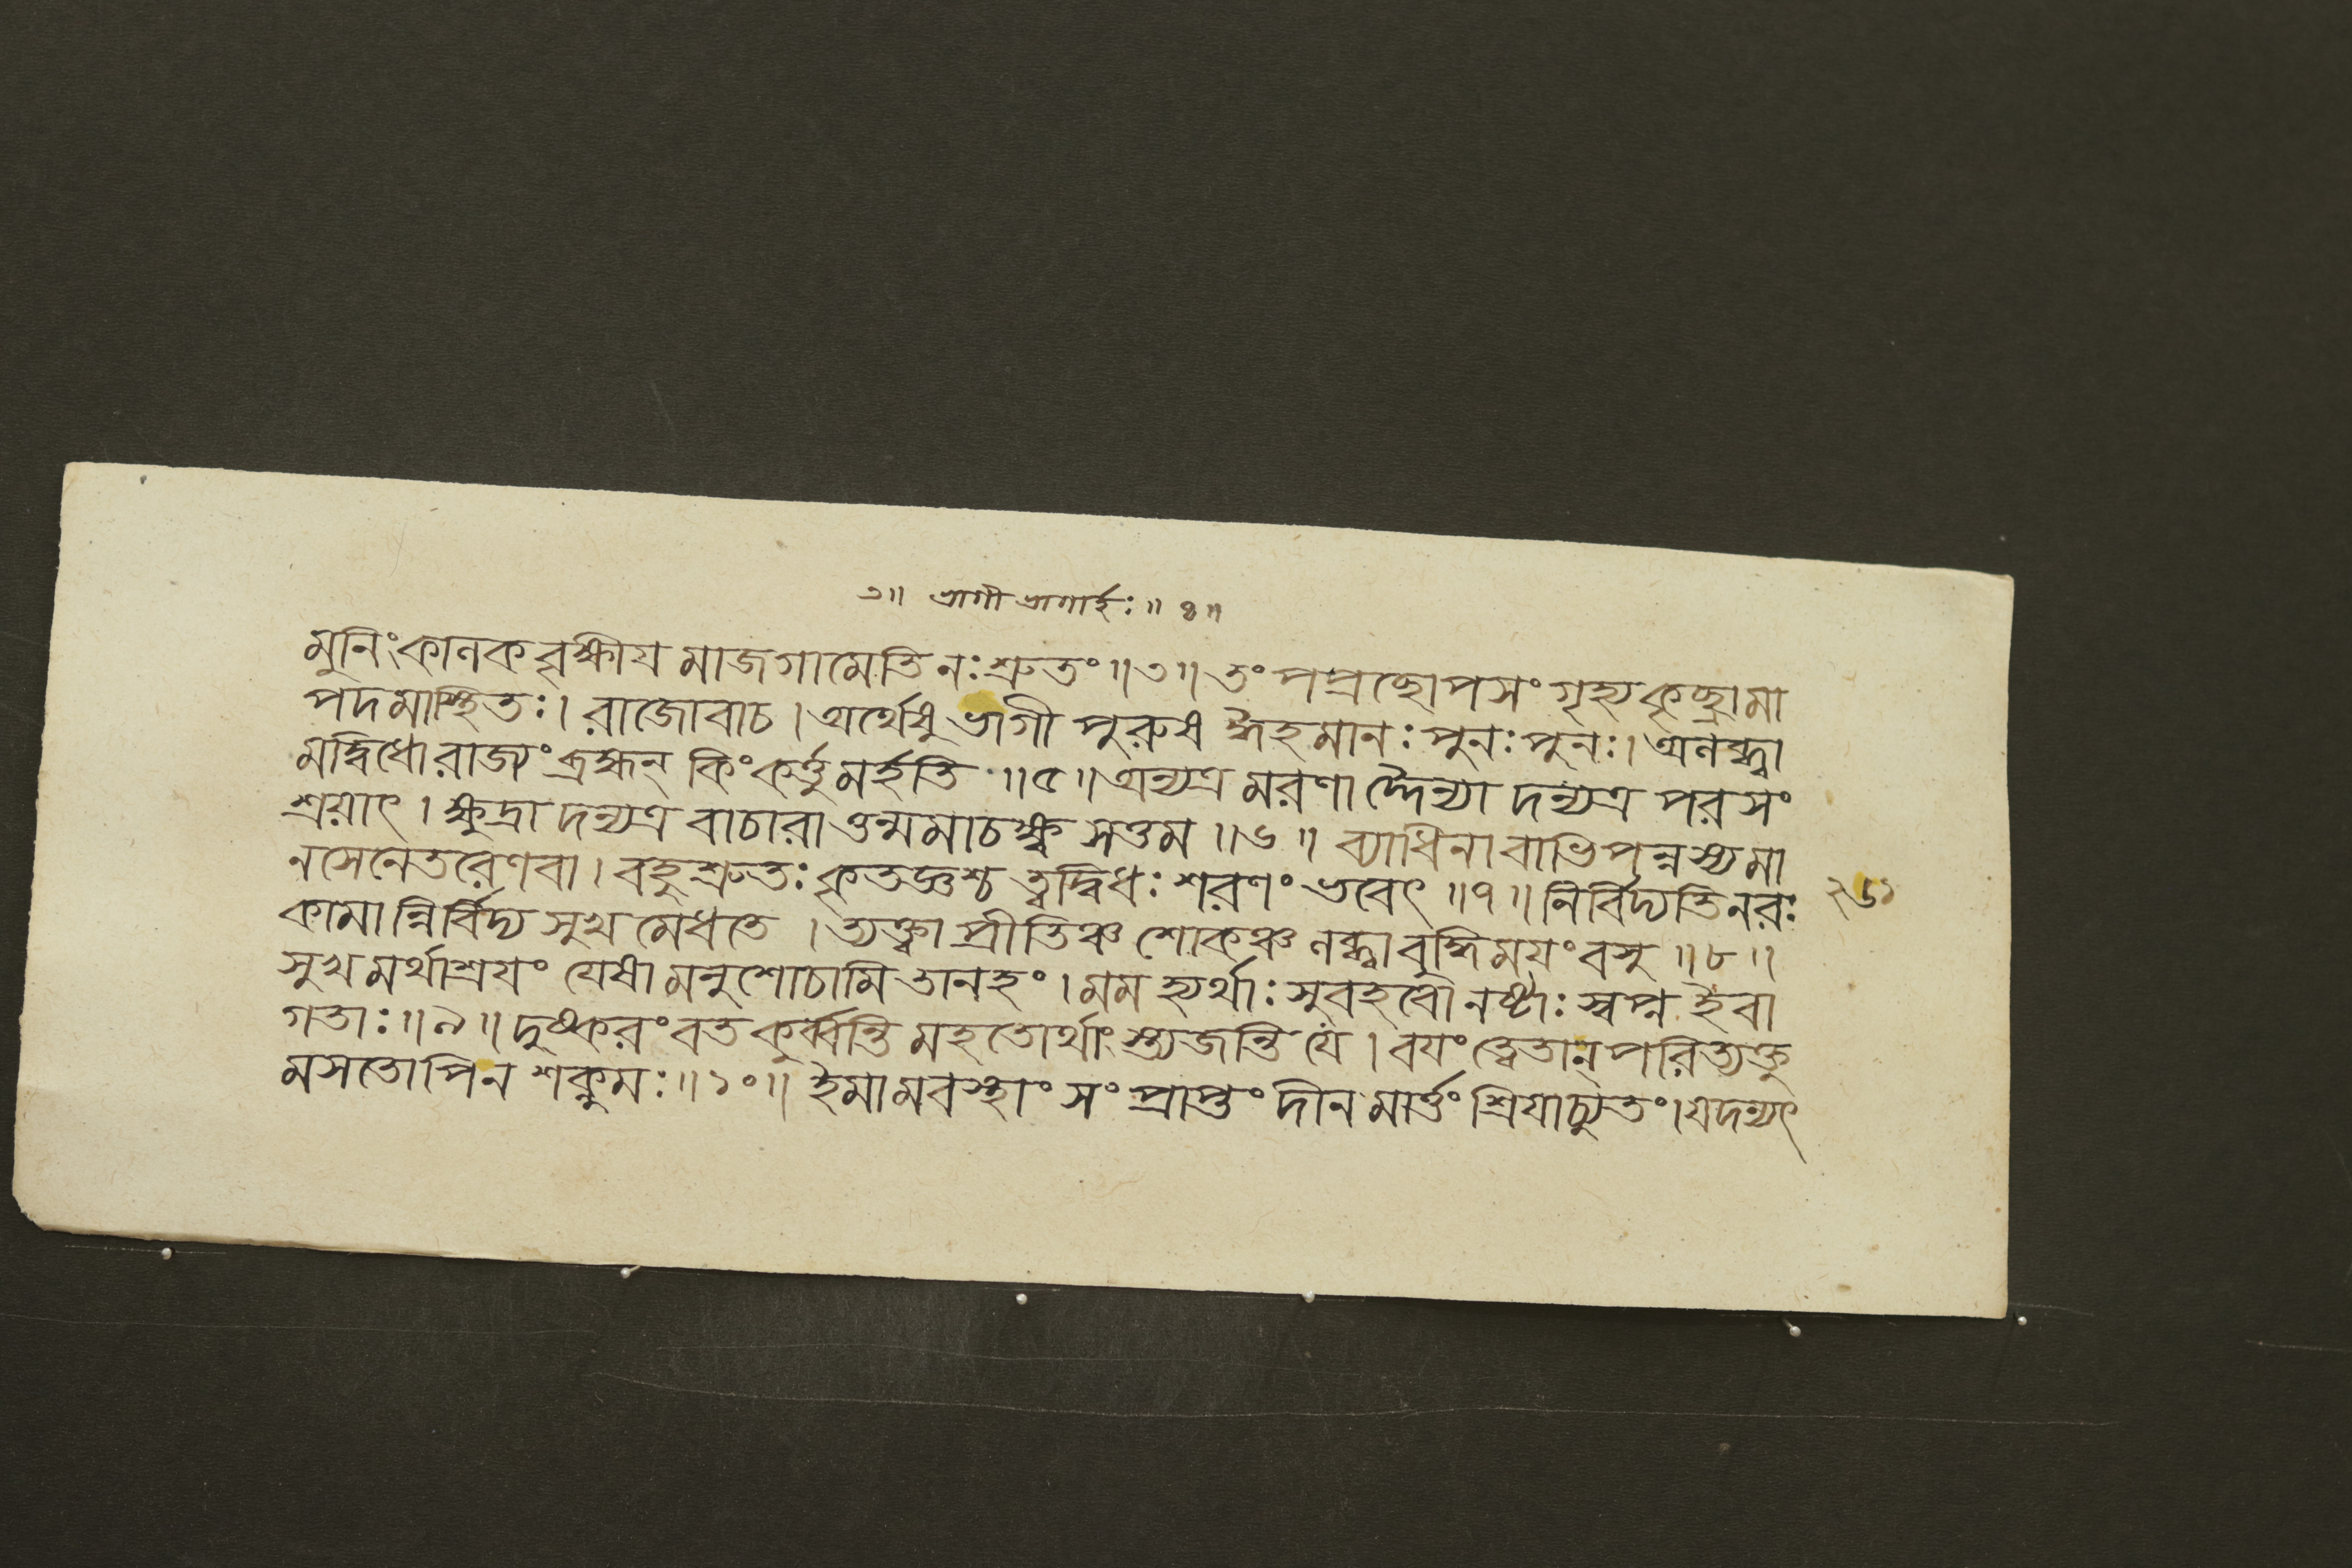 ৩॥ ভাগী ভাগার্হঃ ॥ ৪॥
মুনিং কালকবৃক্ষীয় মাজগামেতি নঃ শ্রুতং ॥৩॥ তং পপ্রচ্ছোপসংগৃহ্য কৃচ্ছ্রামা
পদমাস্থিতঃ। রাজোবাচ। অর্থেষু ভাগী পুরুষ ঈহমানঃ পুনঃ পুনঃ। অলব্ধ্বা
মদ্বিধো রাজ্যং ব্রহ্মন্ কিং কর্ত্তুমর্হতি ॥৫॥ অন্যত্র মরণাদ্দৈন্যা দন্যত্র পরসং
শ্রয়াৎ। ক্ষুদ্রা দন্যত্র বাচারা ত্তন্মমাচক্ষ্ব সত্তম ॥৬॥ ব্যাধিনা বাভিপন্নস্য মা
নসেনেতরেণ বা। বহুশ্রুতঃ কৃতজ্ঞশ্চ ত্বদ্বিধঃ শরণং ভবেৎ ॥৭॥ নির্বিদ্যতি নরঃ
২৬১
কামান্নির্বিদ্য সুখ মেধতে। ত্যক্ত্বা প্রীতিঞ্চ শোকঞ্চ লব্ধ্বা বুদ্ধিময়ং বসু ॥৮॥
সুখ মর্থাশ্রয়ং যেষা মনুশোচামি তানহং। মম হ্যর্থাঃ সুবহবো নষ্টাঃ স্বপ্ন ইবা
গতাঃ ॥৯॥ দুষ্করং বত কুর্ব্বন্তি মহতোর্থাংস্ত্যজন্তি যে। বয়ং ত্বেতান্ পরিত্যক্তু
মসতোপি ন শক্নুমঃ ॥১০॥ ইমামবস্থাং সংপ্রাপ্তং দীন মার্ত্তং শ্রিয়াচ্যুতং। যদন্যৎ